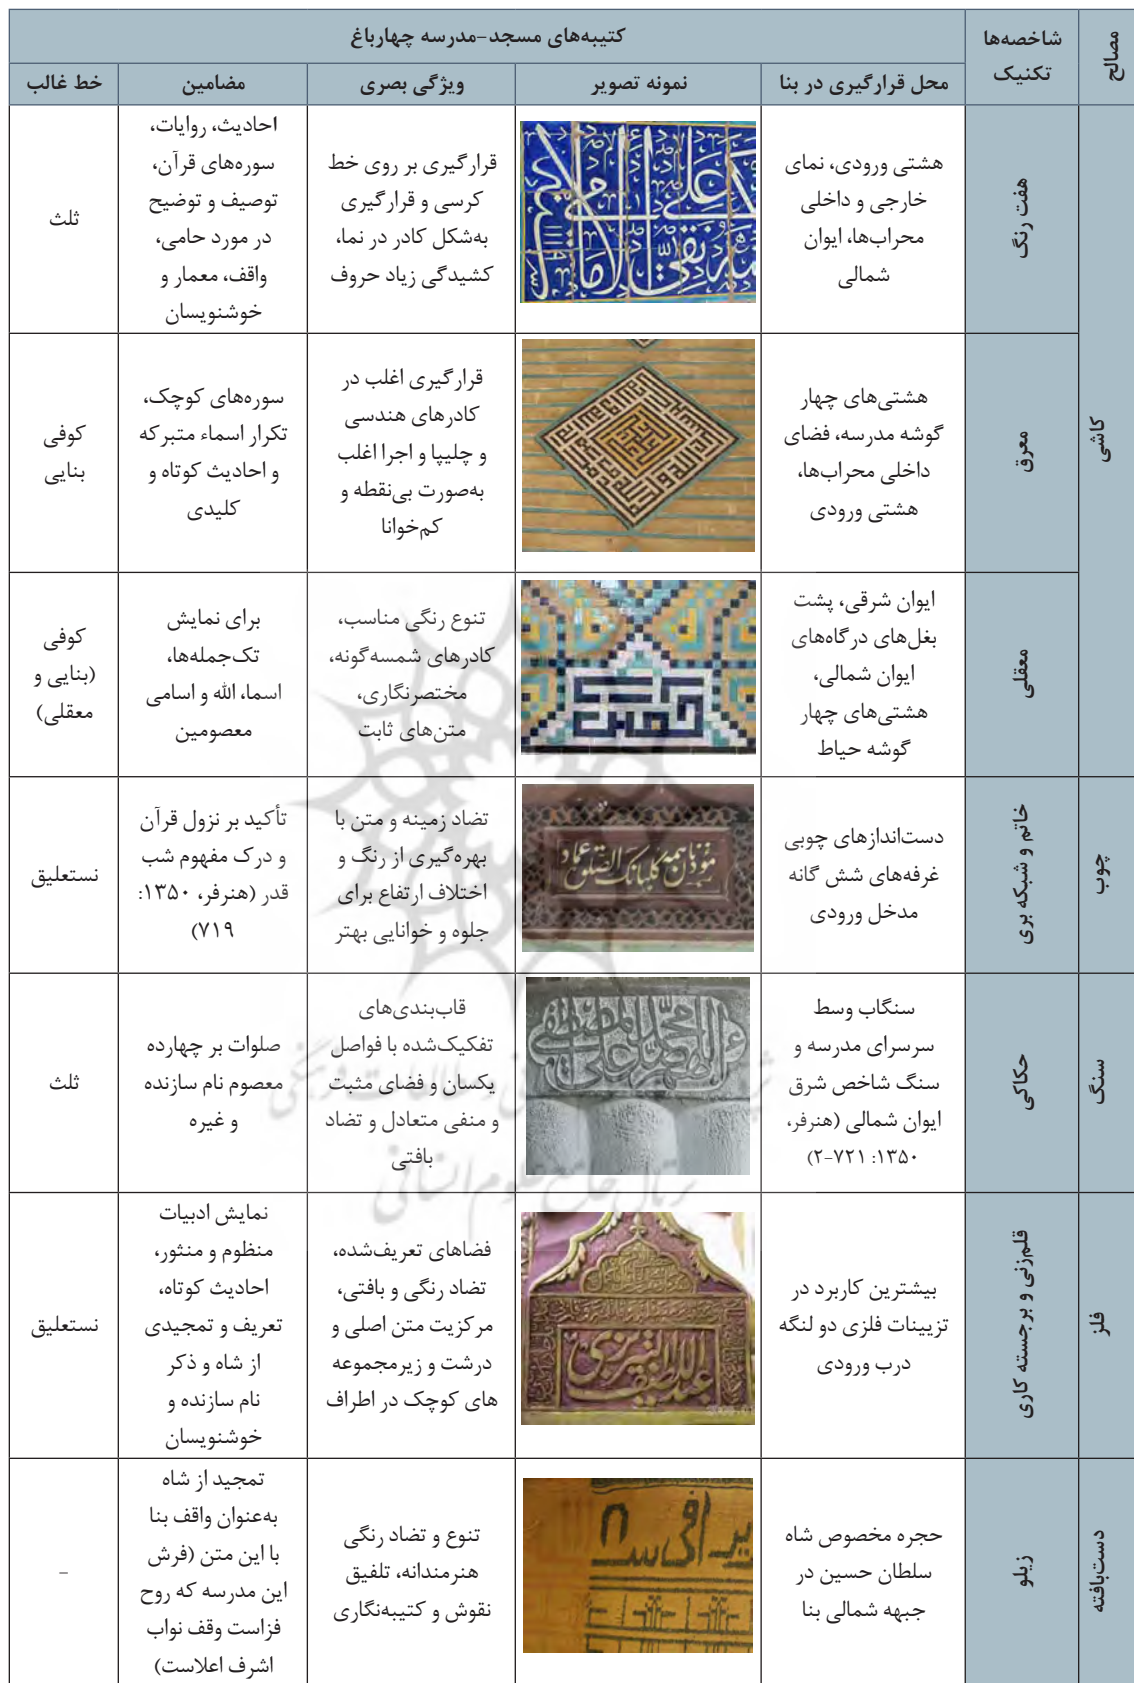 مصالح
شاخصه‌ها
تکنیک
کتیبه‌های مسجد-مدرسه چهارباغ
محل قرارگیری در بنا
نمونه تصویر
ویژگی بصری
مضامین
خط غالب
کاشی
هفت رنگ
هشتی ورودی، نمای
خارجی و داخلی
محراب‌ها، ایوان
شمالی
قرارگیری بر روی خط
کرسی و قرارگیری
به‌شکل کادر در نما،
کشیدگی زیاد حروف
احادیث، روایات،
سوره‌های قرآن،
توصیف و توضیح
در مورد حامی،
واقف، معمار و
خوشنویسان
ثلث
معرق
هشتی‌های چهار
گوشه مدرسه، فضای
داخلی محراب‌ها،
هشتی ورودی
قرارگیری اغلب در
کادرهای هندسی
و چلیپا و اجرا اغلب
به‌صورت بی‌نقطه و
کم‌خوانا
سوره‌های کوچک،
تکرار اسماء متبرکه
و احادیث کوتاه و
کلیدی
کوفی
بنایی
معقلی
ایوان شرقی، پشت
بغل‌های درگاه‌های
ایوان شمالی،
هشتی‌های چهار
گوشه حیاط
تنوع رنگی مناسب،
کادرهای شمسه‌گونه،
مختصرنگاری،
متن‌های ثابت
برای نمایش
تک‌جمله‌ها،
اسما، الله و اسامی
معصومین
کوفی
(بنایی و
معقلی)
چوب
خاتم و شبکه بری
دست‌اندازهای چوبی
غرفه‌های شش گانه
مدخل ورودی
تضاد زمینه و متن با
بهره‌گیری از رنگ و
اختلاف ارتفاع برای
جلوه و خوانایی بهتر
تأکید بر نزول قرآن
و درک مفهوم شب
قدر (هنرفر، ۱۳۵۰:
۷۱۹)
نستعلیق
سنگ
حکاکی
سنگاب وسط
سرسرای مدرسه و
سنگ شاخص شرق
ایوان شمالی (هنرفر،
۱۳۵۰: ۷۲۱-۲)
قاب‌بندی‌های
تفکیک‌شده با فواصل
یکسان و فضای مثبت
و منفی متعادل و تضاد
بافتی
صلوات بر چهارده
معصوم نام سازنده
و غیره
ثلث
فلز
قلم‌زنی و برجسته کاری
بیشترین کاربرد در
تزیینات فلزی دو لنگه
درب ورودی
فضاهای تعریف‌شده،
تضاد رنگی و بافتی،
مرکزیت متن اصلی و
درشت و زیرمجموعه
های کوچک در اطراف
نمایش ادبیات
منظوم و منثور،
احادیث کوتاه،
تعریف و تمجیدی
از شاه و ذکر
نام سازنده و
خوشنویسان
نستعلیق
دست‌بافته
زیلو
حجره مخصوص شاه
سلطان حسین در
جبهه شمالی بنا
تنوع و تضاد رنگی
هنرمندانه، تلفیق
نقوش و کتیبه‌نگاری
تمجید از شاه
به‌عنوان واقف بنا
با این متن (فرش
این مدرسه که روح
فزاست وقف نواب
اشرف اعلاست)
-